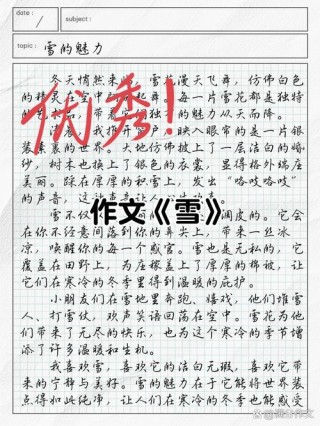 date: /
subject:
topic: 雪的魅力
优秀!
冬天悄然来 雪花漫天飞舞，仿佛白色
的精灵在空中 起舞。每一片雪花都是独特
的 品，带着 独特的魅力从天而降。
我推开 户，映入眼帘的是一片银
装素裹的世界。大地仿佛披上了一层洁白的婚
纱，树木也换上了银色的衣裳，显得格外端庄
美丽。踩在厚厚的积雪上，发出“咯吱咯吱”
的声音，这
作文《雪》
雪不仅 调皮的。它会
在你不经意间落到你的鼻尖上，带来一丝冰
凉，唤醒你的每一个感官。雪也是无私的，它
覆盖在田野上，为庄稼盖上了厚厚的棉被，让
它们在寒冷的冬季里得到温暖的庇护。
小朋友们在雪地里奔跑、嬉戏，他们堆雪
人、打雪仗，欢声笑语回荡在空中。雪花为他
们带来了无尽的快乐，也为这个寒冷的季节增
添了许多温暖和生机。
我喜欢雪，喜欢它的洁白无瑕，喜欢它带
来的宁静与美好。雪的魅力在于它能将世界装
点得如此纯净，让人们在寒冷的冬季也能感受